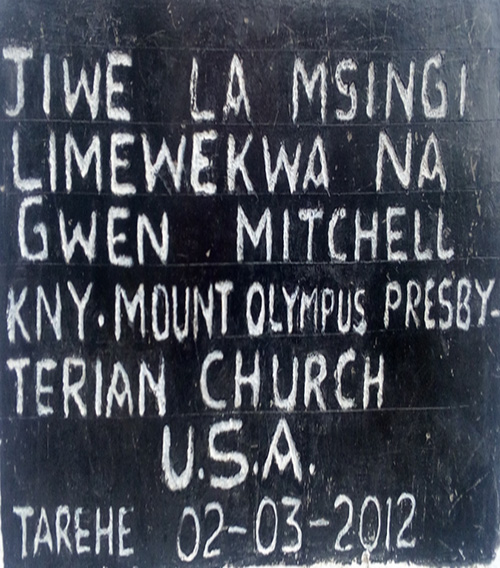 JIWE LA MSINGI
LIMEWEKWA NA
GWEN MITCHELL
KNY. MOUNT OLYMPUS PRESBY-
TERIAN CHURCH
U.S.A.
TAREHE 02-03-2012